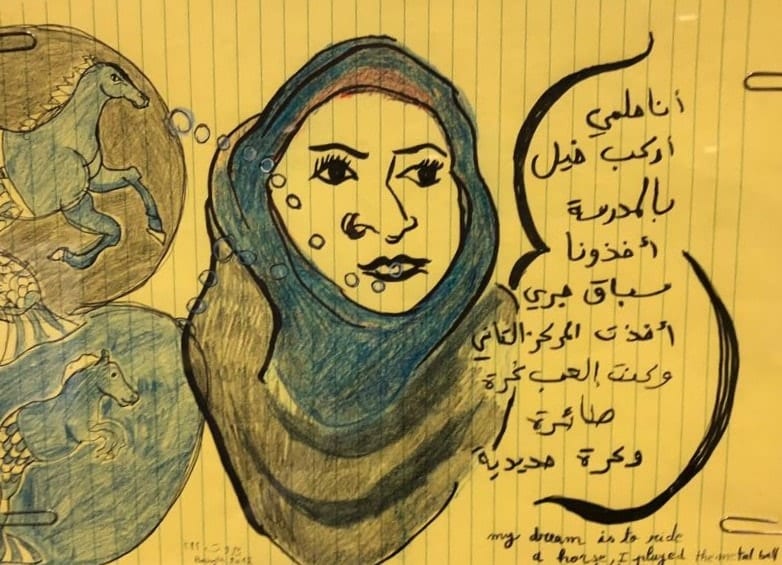 أنا حلمي
أركب خيل
بالمدرسة
أخذونا
سباق جري
أخذت المركز الثاني
وكنت إلعب كرة
طائرة
وكرة حديدية
my dream is to ride
a horse, I played the metal ball